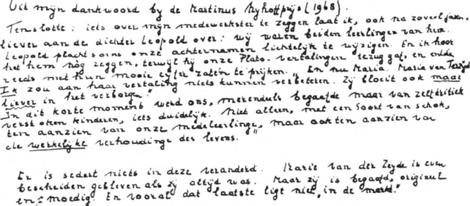 Uit mijn dankwoord bij de Martinus Nijhoffprijs (1968):
Tenslotte: iets over mijn medewerkster te zeggen laat ik, ook na zoveel jaren,
liever aan de dichter Leopold over: wij waren beiden leerlingen van hem.
Leopold placht soms onze achternamen lichtelijk te wijzigen. En ik hoor
het hem nòg zeggen, terwijl hij onze Plato-vertalingen terug gaf, en onze
reeds met hun mooie cijfer zaten te prijken: "En nu Marie. Marie van
Ik zou aan haar vertaling niets kunnen verbeteren. Zij bloeit ook maar
liever in het verborgen."
In dit korte moment werd ons, merendeels begaafde maar van zelfkritiek
verstoken kinderen, iets duidelijk. Niet alleen, met een soort van schok,
ten aanzien van onze "medeleerlinge", maar ook ten aanzien van
de werkelijke verhoudingen des levens.
Er is sedert niets in deze veranderd. Marie van der Zeyde is even
bescheiden gebleven als zij altijd was. Maar zij is begaafd, origineel
en moedig. En vooral dat laatste ligt niet "in de markt."